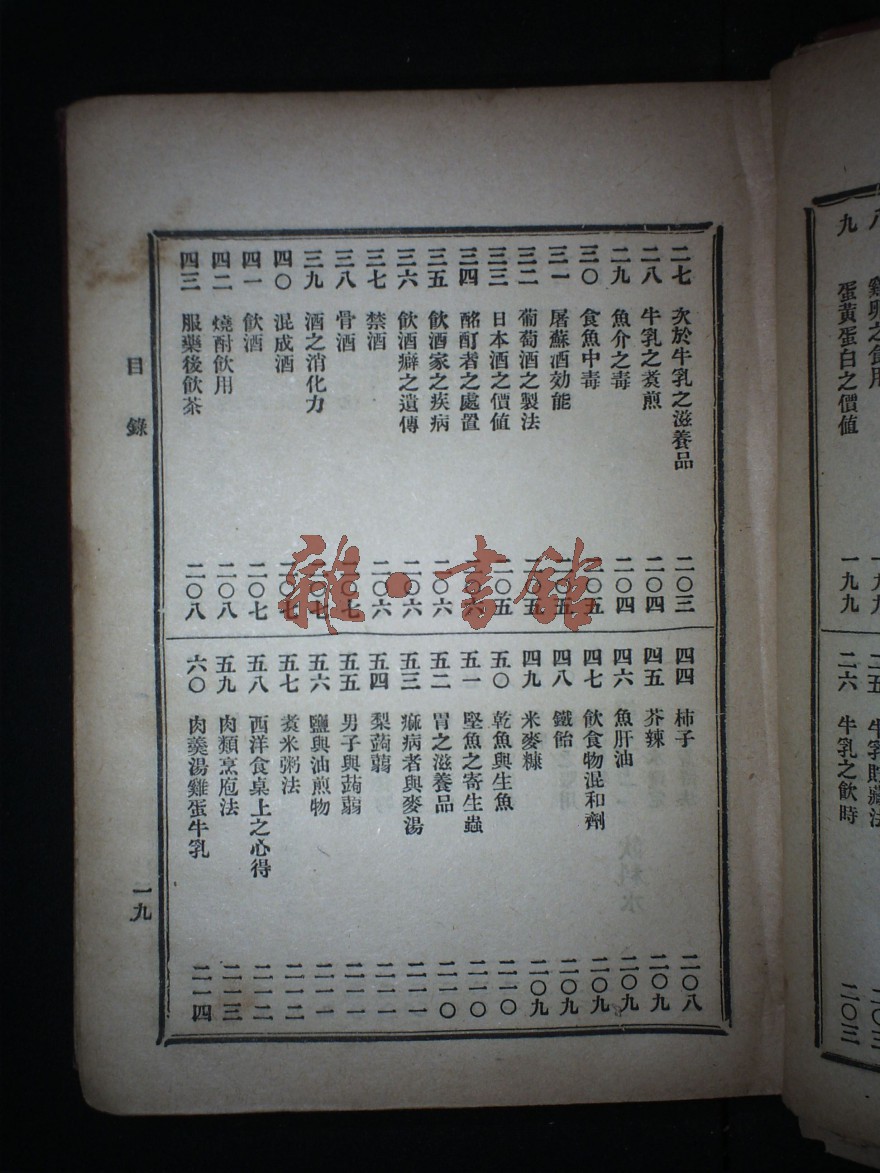 九 蛋黃蛋白之價值 一九九
二五 牛乳貯藏法 二〇三
二六 牛乳之飲時 二〇三
二七 次於牛乳之滋養品 二〇三
二八 牛乳之煑煎 二〇四
二九 魚介之毒 二〇四
三〇 食魚中毒 二〇五
三一 屠蘇酒効能 二〇五
三二 葡萄酒之製法 二〇五
三三 日本酒之價値 二〇五
三四 酩酊者之處置 二〇六
三五 飲酒家之疾病 二〇六
三六 飲酒癖之遺傳 二〇六
三七 禁酒 二〇六
三八 骨酒 二〇七
三九 酒之消化力 二〇七
四〇 混成酒 二〇七
四一 飲酒 二〇七
四二 燒酎飲用 二〇八
四三 服藥後飲茶 二〇八
四四 柿子 二〇八
四五 芥辣 二〇九
四六 魚肝油 二〇九
四七 飲食物混和劑 二〇九
四八 鐵飴 二〇九
四九 米麥糠 二〇九
五〇 乾魚與生魚 二一〇
五一 堅魚之寄生蟲 二一〇
五二 胃之滋養品 二一〇
五三 痲病者與麥湯 二一一
五四 梨蒟蒻 二一一
五五 男子與蒟蒻 二一一
五六 鹽與油煎物 二一一
五七 煑米粥法 二一二
五八 西洋食桌上之心得 二一二
五九 肉類烹庖法 二一三
六〇 肉羹湯雞蛋牛乳 二一四
目錄
一九
雜·書館